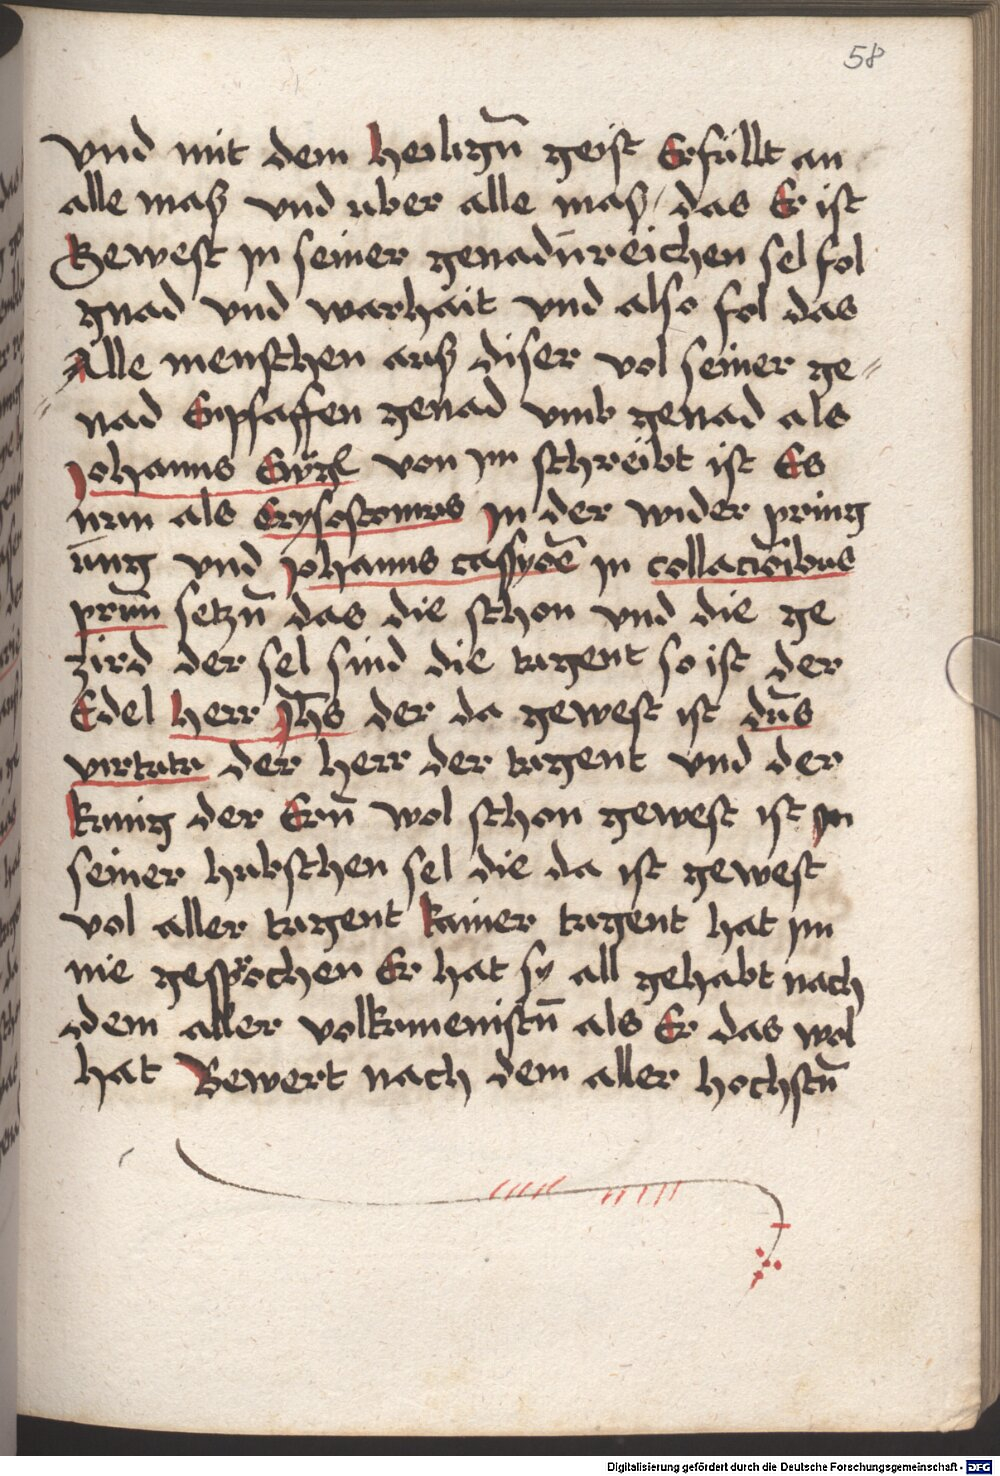 58
vnd mit dem heiligñ geist Erfüllt an
alle maß vnd uber alle maß / das Er ist
Gewest jn seiner genadūreichen sel fol
gnad vnd warhait vnd also fol das
Alle menschen auß diser vol seiner ge=
nad Enpfaffen genad vmb genad als
johanns von jm schreibt ist Es
nun als Crysostomus jn der wider pring
ung vnd johanns cassyōē jn collaciōībus
prim̄ setzñ das die schon vnd die ge
zird der sel sind die tugent so ist der
Edel herr Jhs der da gewest ist dn̄s
virtutū der herr der tugent vnd der
kunig der Ern̄ wol schon gewest ist jn
seiner hubschen sel die da ist gewest
vol aller tugent kainer tugent hat jm
nie gesprochen Er hat sy all gehabt nach
dem aller volkumenistn̄ als Er das wol
hat Bewert nach dem aller hochstn̄
Digitalisierung gefördert durch die Deutsche Forschungsgemeinschaft - DFG